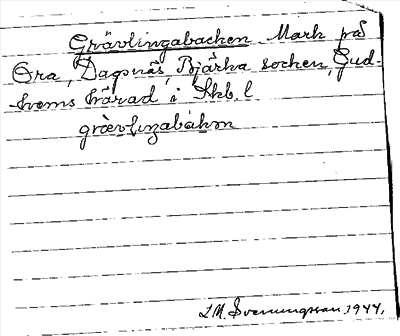 Grävlingabacken. Mark på
Ora, Dagsnäs, Bjärka socken, Gud-
hems härad i Skb. l
grævliŋabákɐn
L M. Svenungsson 1944.